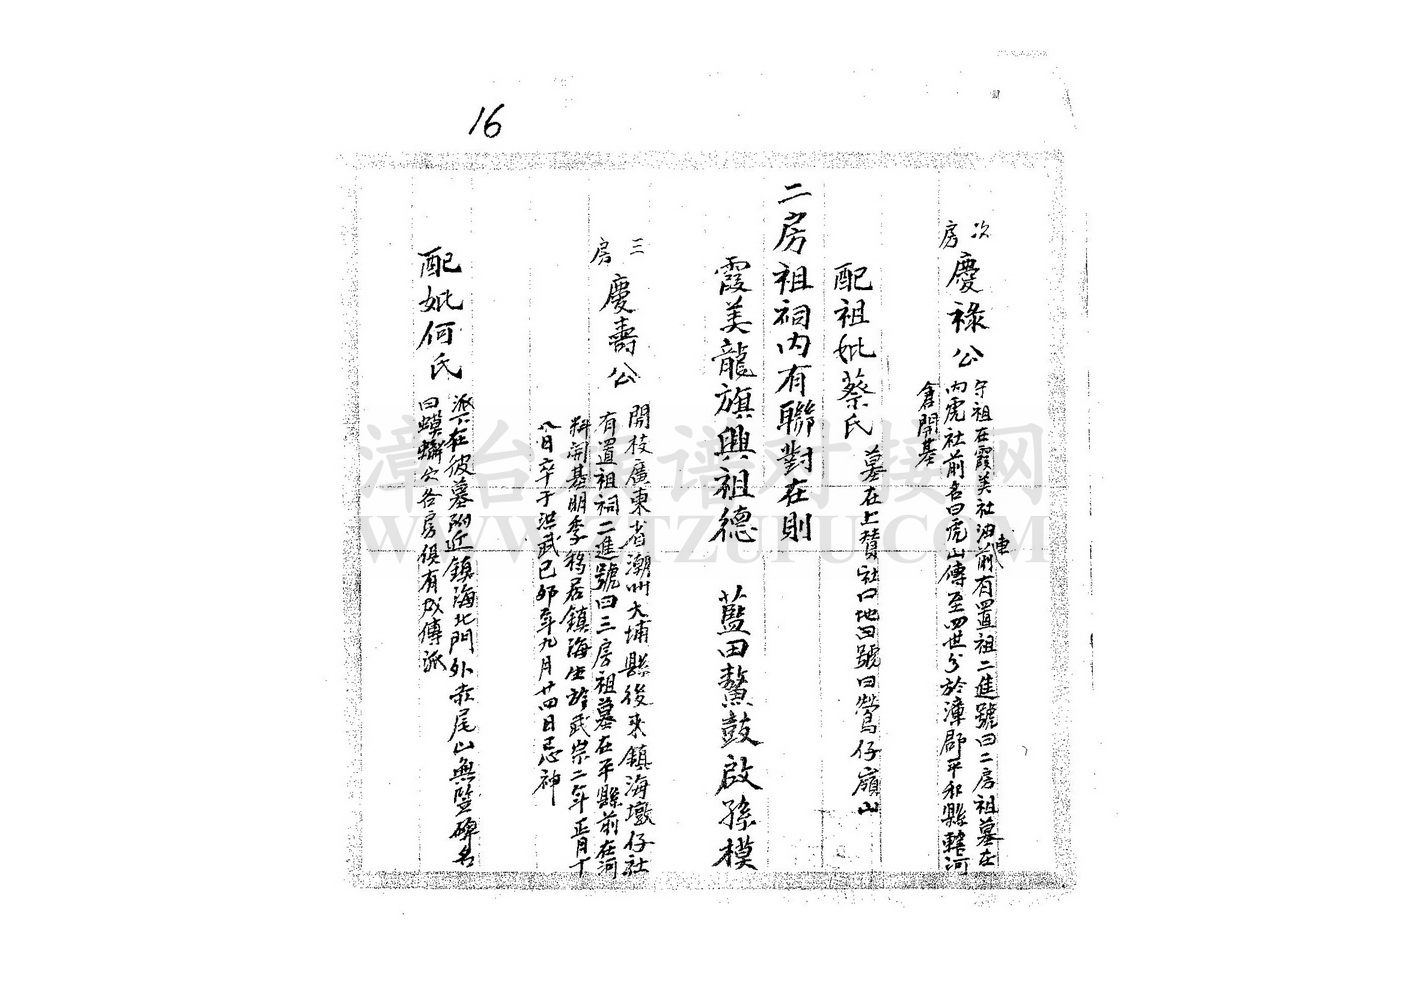 16
次房
慶祿公
守祖在霞美社油車前有置祖二進號曰二房祖墓在
内虎社前名曰虎山傳至四世分於漳郡平和縣轄河
倉開基
配祖妣蔡氏
墓在上贊社口地曰號曰鶯仔嶺山
二房祖祠内有聯對在則
霞美龍旗興祖德 藍田鰲鼓啟孫模
三房
慶壽公
開枝廣東省潮州大埔縣後來鎮海墩仔社
有置祖祠二進號曰三房祖墓在平縣前在河
料開基明季移居鎮海生於武宗二年正月十
八日卒于洪武已卯年九月廿四日忌神
配妣何氏
派下在彼墓附近鎮海北門外赤尾山無豎碑名
曰蟛蠏穴各房俱有成傳派
漳台族谱对接网
WWW.ZTZUPU.COM